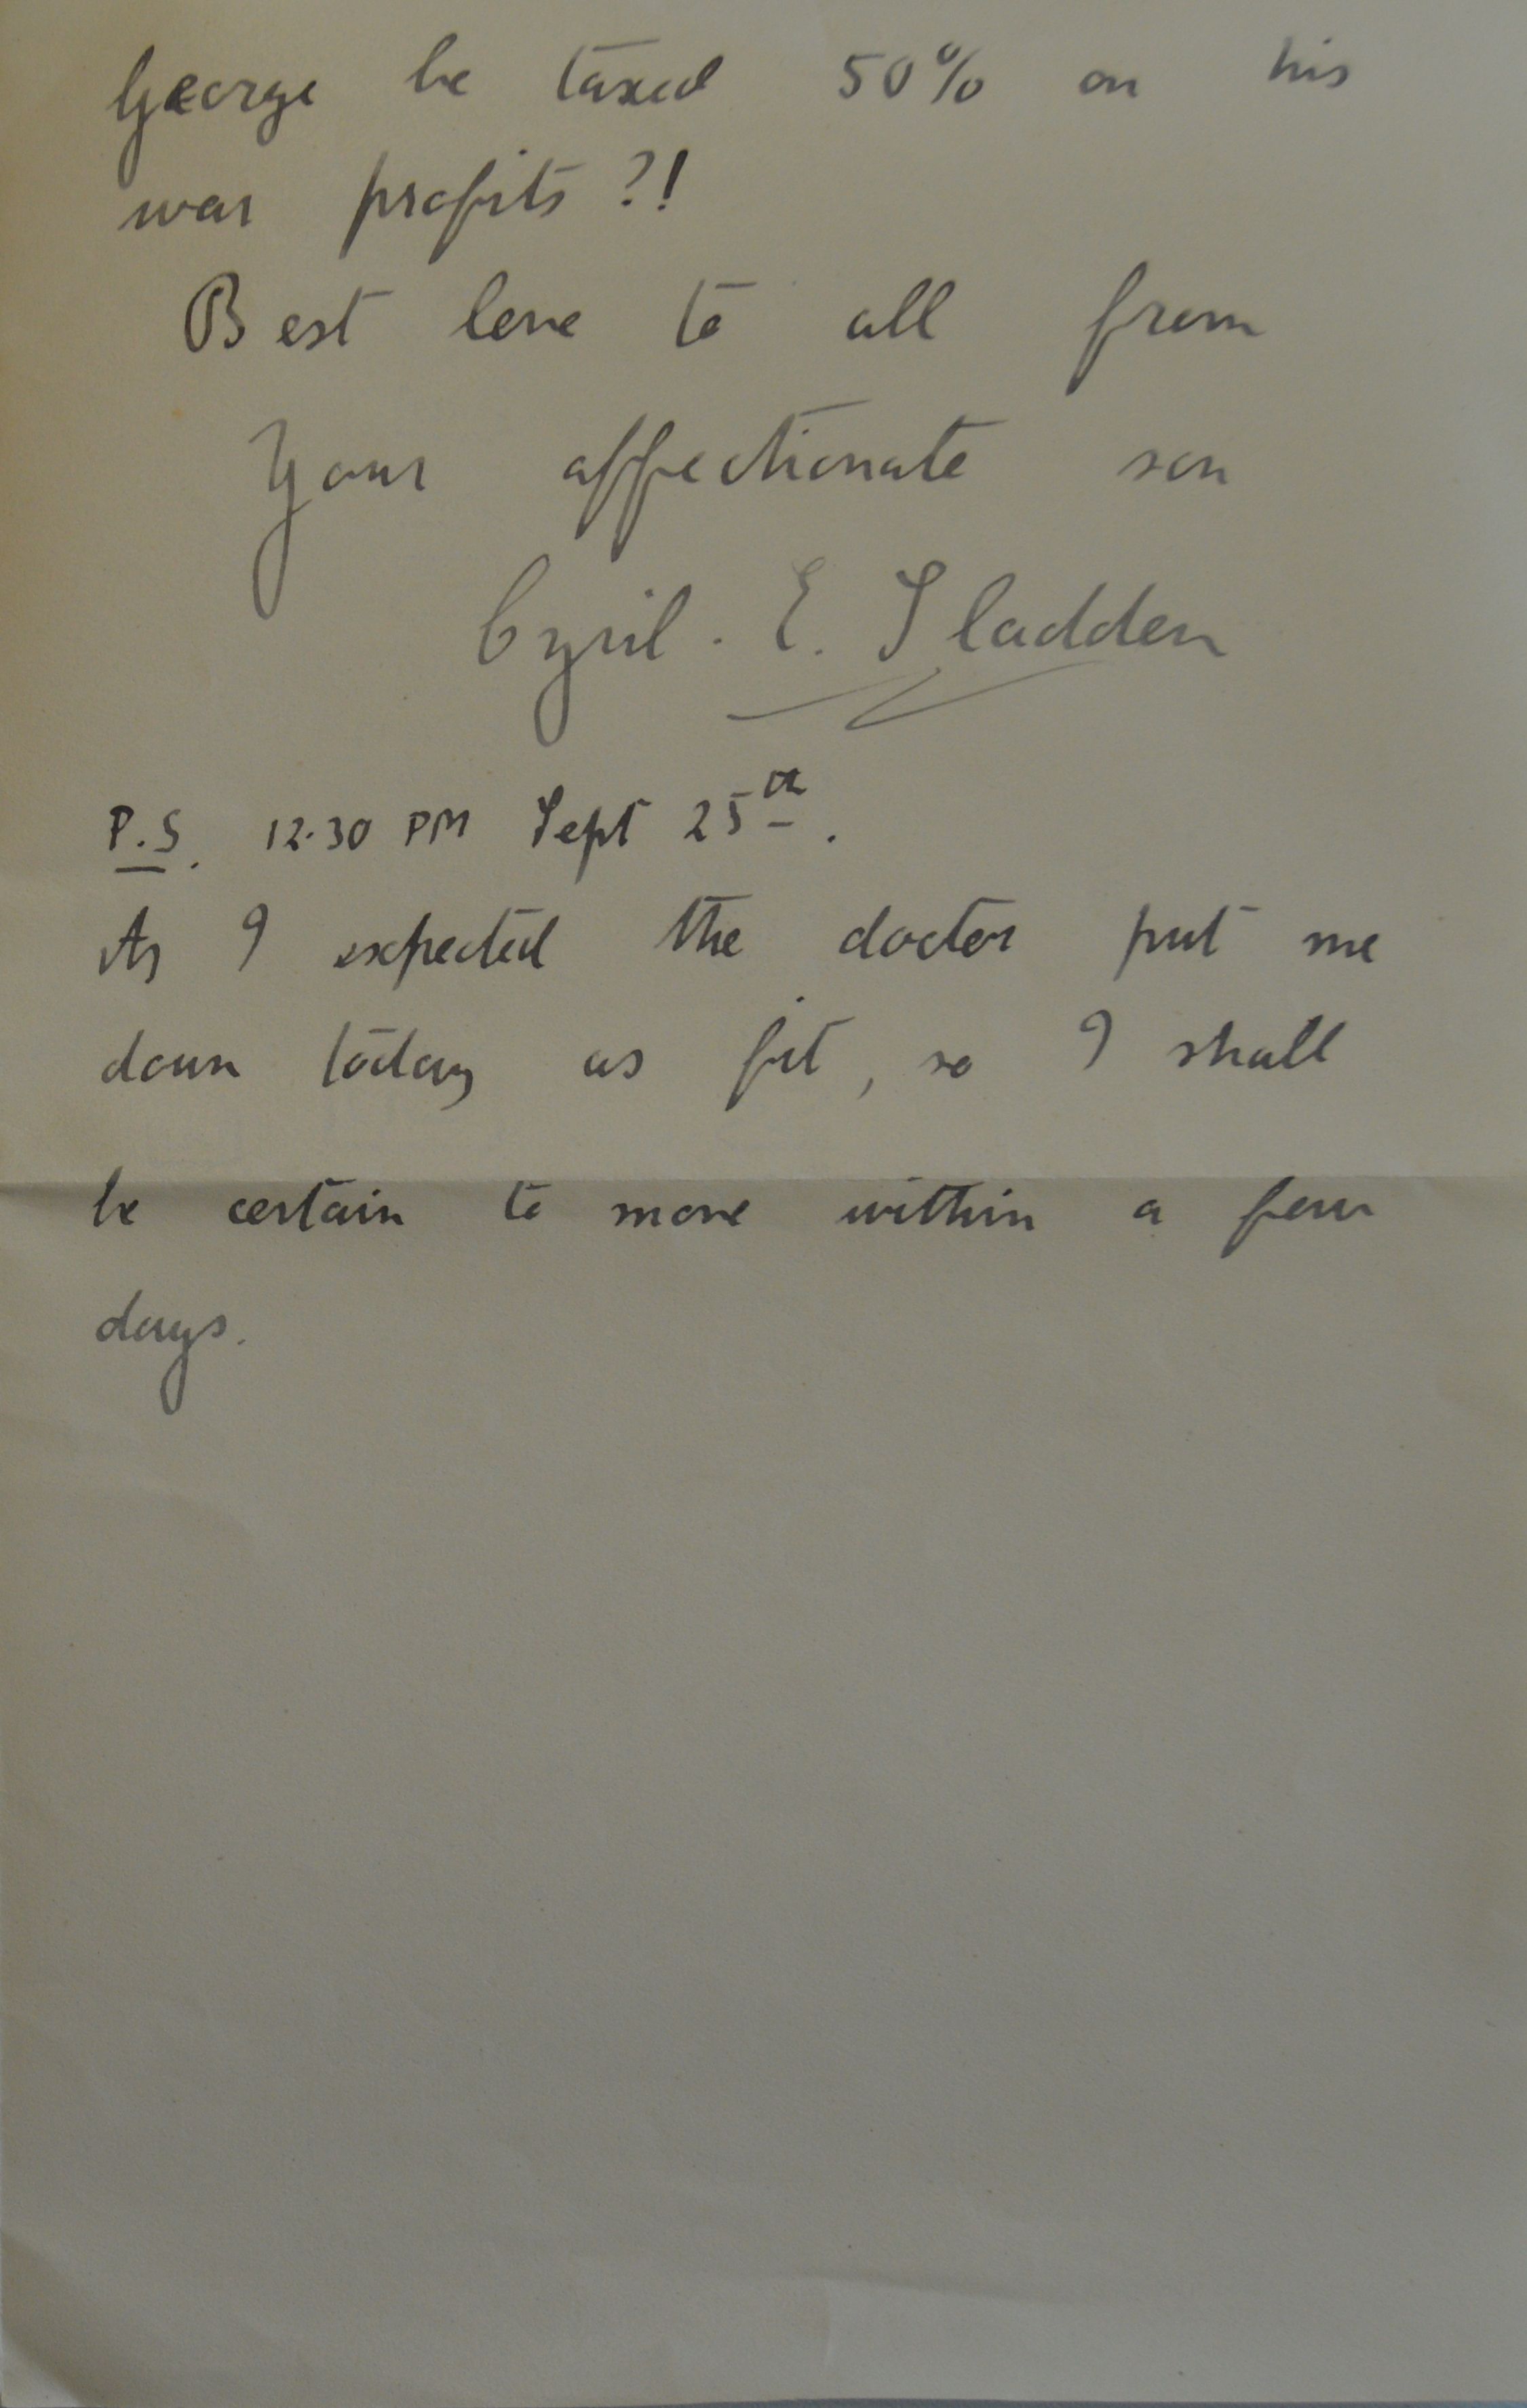 George be taxed 50% on his
war profits?!
Best love to all from
Your affectionate son
Cyril. E. Sladden
P.S. 12.30 PM Sept 25th.
As I expected the doctor put me
down today as fit, so I shall
be certain to move within a few
days.